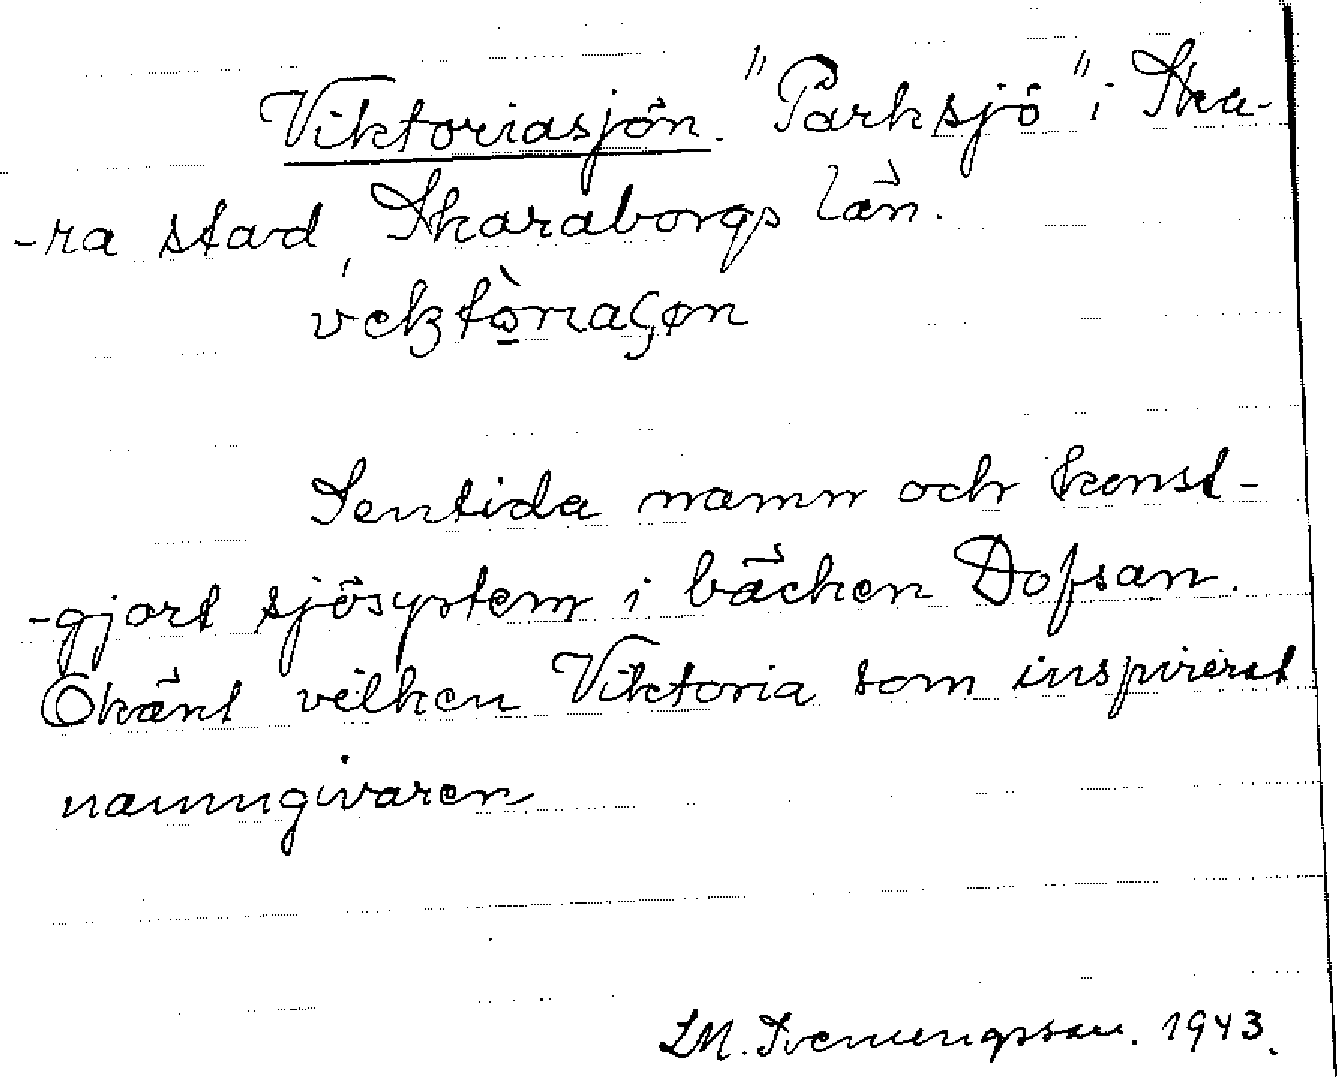 Viktoriasjön. "Parksjö" i Ska-
-ra stad, Skaraborgs län.
Sentida namn och konst-
-gjort sjösystem i bäcken Dofsan.
Okänt vilken Viktoria som inspirerat
namngivaren
LM. Svenungsson. 1943.